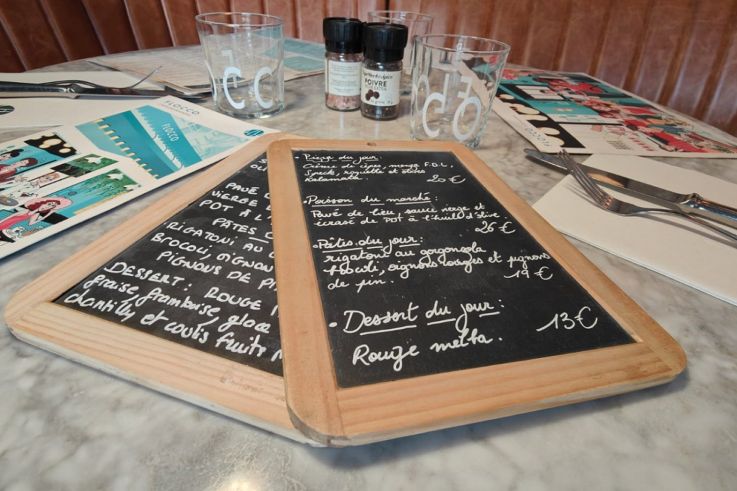 Pizza du jour
Crème de cèpes, mozza F.D.L,
Speck, roquette et olives
Kalamata. 20 €
• Poisson du marché:
Pavé de lieu sauce vierge et
écrasé de PDT à l'huile d'olive.
26 €
• Pâtes du jour:
rigatoni au gorgonzola
brocoli, oignons rouges et pignons
de pin. 19 €
• Dessert du jour:
13 €
Rouge melba.
PAVÉ
VIERGE
POT À L'
PÂTES
RIGATONI AU
BROCOLI, OIGNON
PIGNONS DE PI
DESSERT: ROUGE
fraise, framboise, glace
chantilly et coulis fruits
FLOCCO
FLOCCO
POIVRE